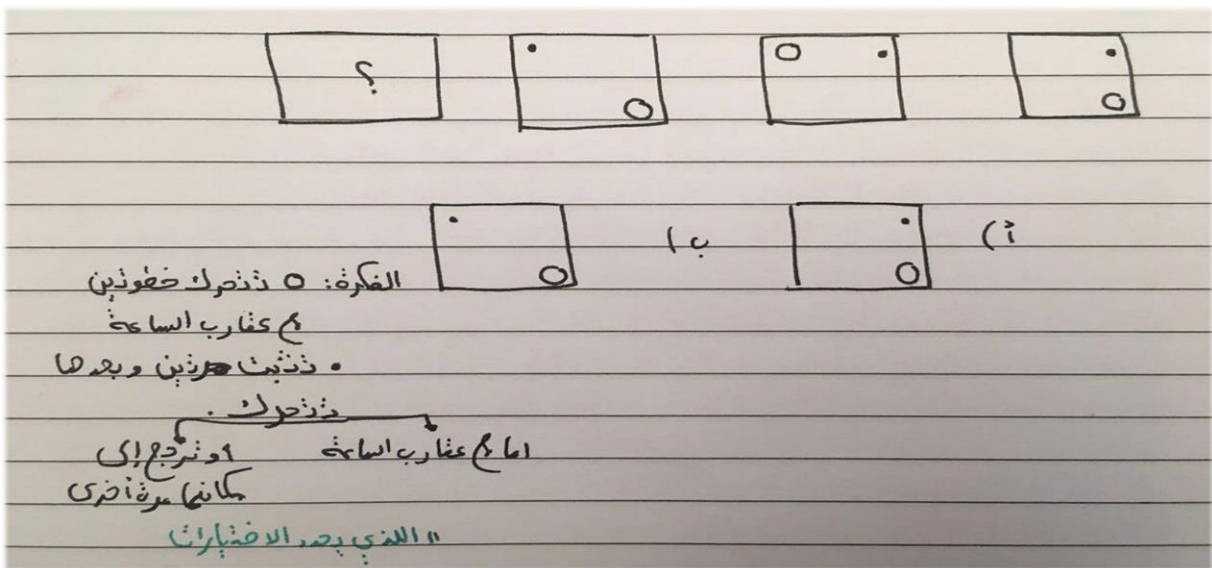 ؟
أ)
ب)
الفكرة: O تتحرك خطوتين
مع عقارب الساعة
• تثبت مرتين وبعدها
تتحرك .
اما مع عقارب الساعة
او ترجع إلى
مكانها مرة أخرى
" اللذي يحدد الاختيارات